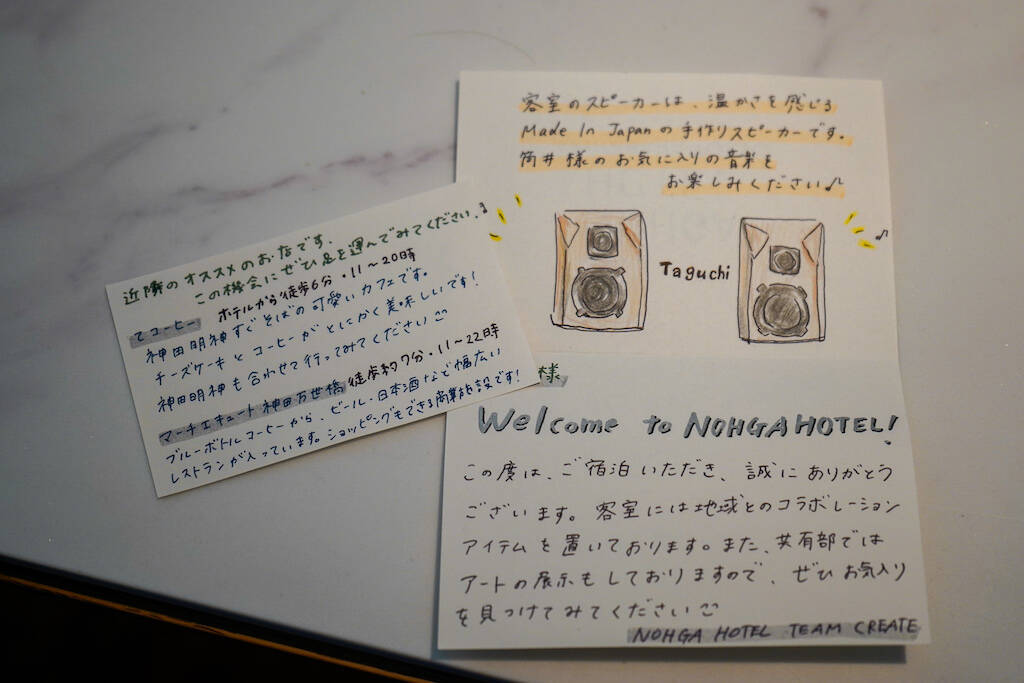 近隣のオススメのお店です。
この機会にぜひ足を運んでみてください♪
てコーヒー ホテルから徒歩6分・11～20時
神田明神すぐそばの可愛いカフェです。
チーズケーキとコーヒーがとにかく美味しいです!
神田明神も合わせて行ってみてください
マーチエキュート神田万世橋 徒歩約7分・11～22時
ブルーボトルコーヒーから、ビール・日本酒など幅広い
レストランが入っています。ショッピングもできる商業施設です!
客室のスピーカーは、温かさを感じる
Made In Japanの手作りスピーカーです。
筒井様のお気に入りの音楽を
お楽しみください♪
Taguchi
様
Welcome to NOHGA HOTEL!
この度は、ご宿泊いただき、誠にありがとう
ございます。客室には地域とのコラボレーション
アイテムを置いております。また、共有部では
アートの展示もしておりますので、ぜひお気入り
を見つけてみてください
NOHGA HOTEL TEAM CREATE